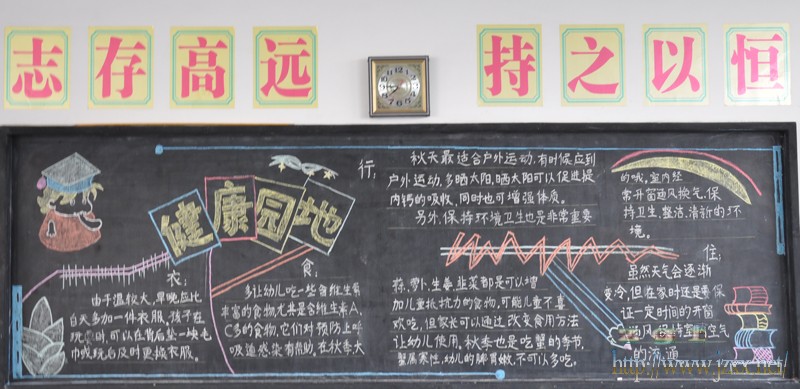 志存高远
持之以恒
健康园地
衣:
由于温较大,早晚应比
白天多加一件衣服,孩子在
玩时,可以在背后垫一块毛
巾或玩后及时更换衣服。
食:
多让幼儿吃一些含维生素
丰富的食物尤其是含维生素A、
C多的食物,它们对预防上呼
吸道感染有帮助。在秋季大
蒜、萝卜、生姜、韭菜都是可以增
加儿童抵抗力的食物,可能儿童不喜
欢吃,但家长可以通过改变食用方法
让幼儿使用。秋季也是吃蟹的季节,
蟹属寒性,幼儿的脾胃嫩,不可以多吃。
行:
秋天最适合户外运动,有时候应到
户外运动,多晒太阳,晒太阳可以促进提
内钙的吸收,同时也可增强体质。
另外,保持环境卫生也是非常重要
的哦,室内经
常开窗通风换气,保
持卫生、整洁、清新的环
境。
住:
虽然天气会逐渐
变冷,但在家时还是要保
证一定时间的开窗
通风,保持室内空气
的流通